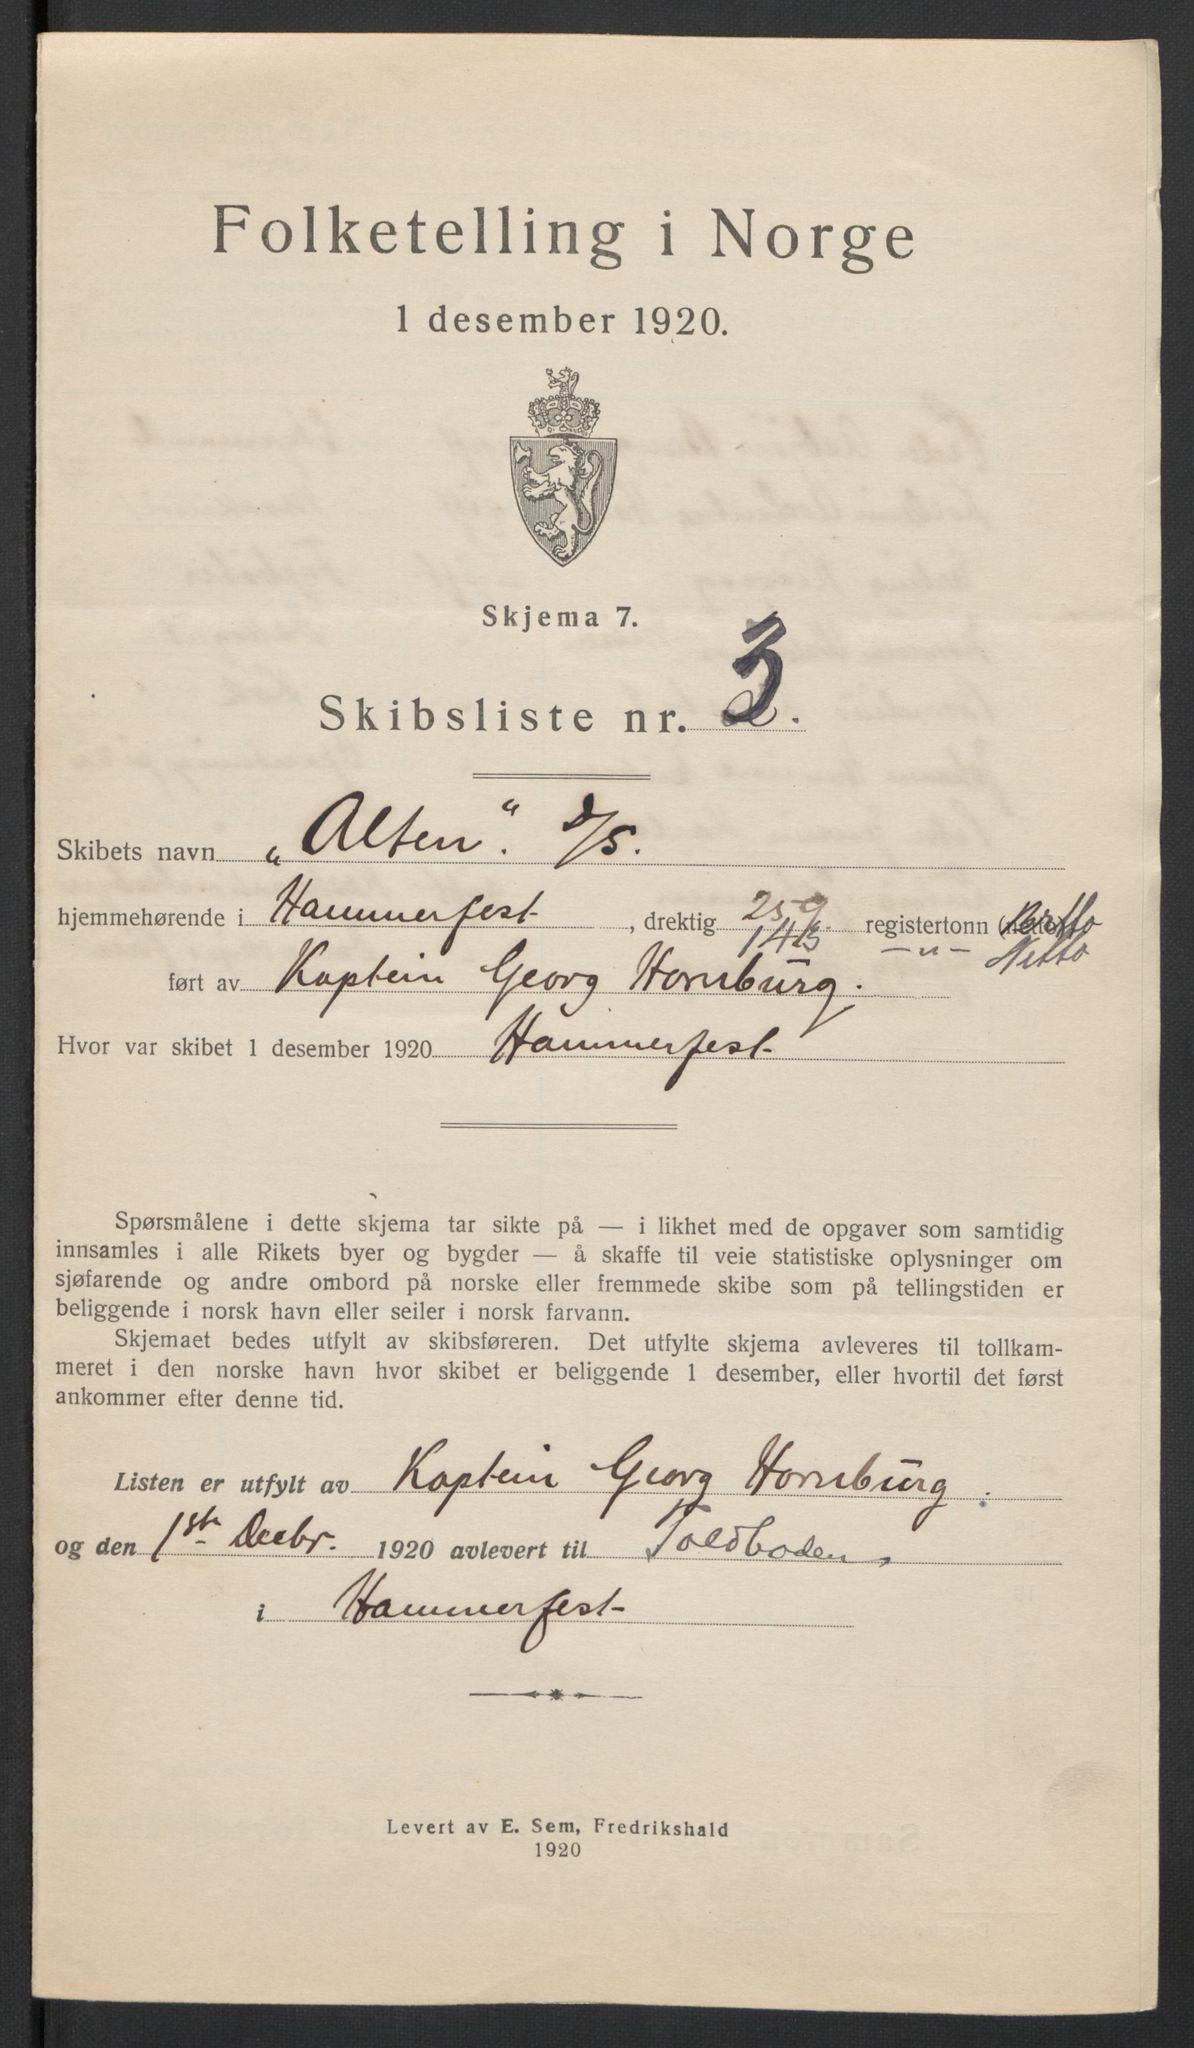 Folketelling i Norge
1 desember 1920.
Skjema 7.
Skibsliste nr. 3.
Skibets navn „Alten“. D/S.
hjemmehørende i Hammerfest, drektig 259 registertonn (netto) Brutto
143 —"— Netto
ført av Kaptein Georg Hornburg.
Hvor var skibet 1 desember 1920 Hammerfest
Spørsmålene i dette skjema tar sikte på — i likhet med de opgaver som samtidig
innsamles i alle Rikets byer og bygder — å skaffe til veie statistiske oplysninger om
sjøfarende og andre ombord på norske eller fremmede skibe som på tellingstiden er
beliggende i norsk havn eller seiler i norsk farvann.
Skjemaet bedes utfylt av skibsføreren. Det utfylte skjema avleveres til tollkam-
meret i den norske havn hvor skibet er beliggende 1 desember, eller hvortil det først
ankommer efter denne tid.
Listen er utfylt av Kaptein Georg Hornburg.
og den 1ste Decbr. 1920 avlevert til Toldboden
i Hammerfest
Levert av E. Sem, Fredrikshald
1920